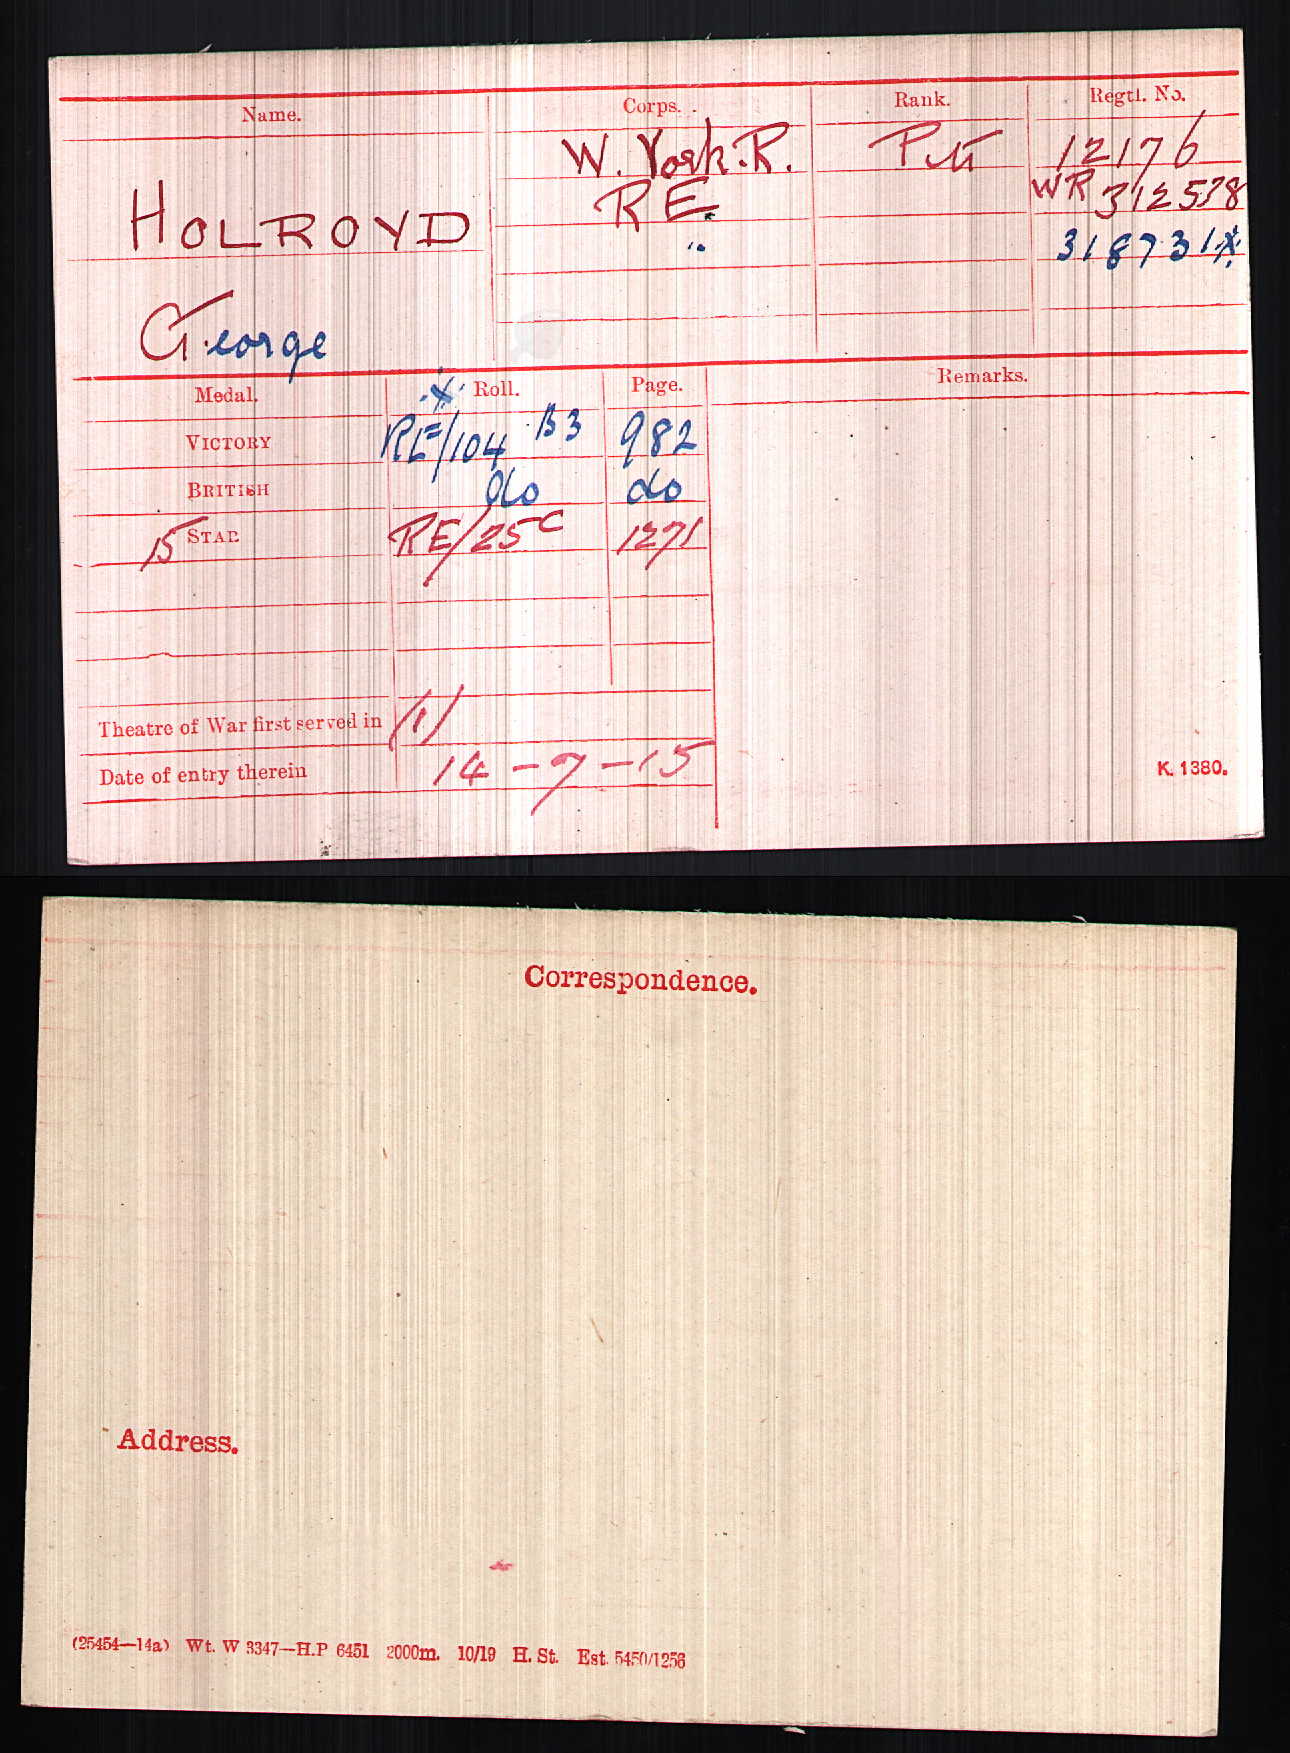 Name. Corps. Rank. Regtl. No.
W. York. R. Pte 12176
HOLROYD RE WR 312538
" 318731 X
George
Medal. X Roll. Page. Remarks.
VICTORY RE/104 B3 982
BRITISH do do
15 STAR RE/25C 1271
Theatre of War first served in (1)
Date of entry therein 14-7-15
K. 1380.
Correspondence.
Address.
(25454—14a) Wt. W 3347—H.P 6451 2000m. 10/19 H. St. Est. 5450/1256